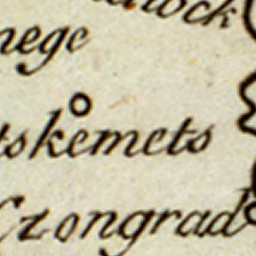 lock
nege
tskemets
Czongrad